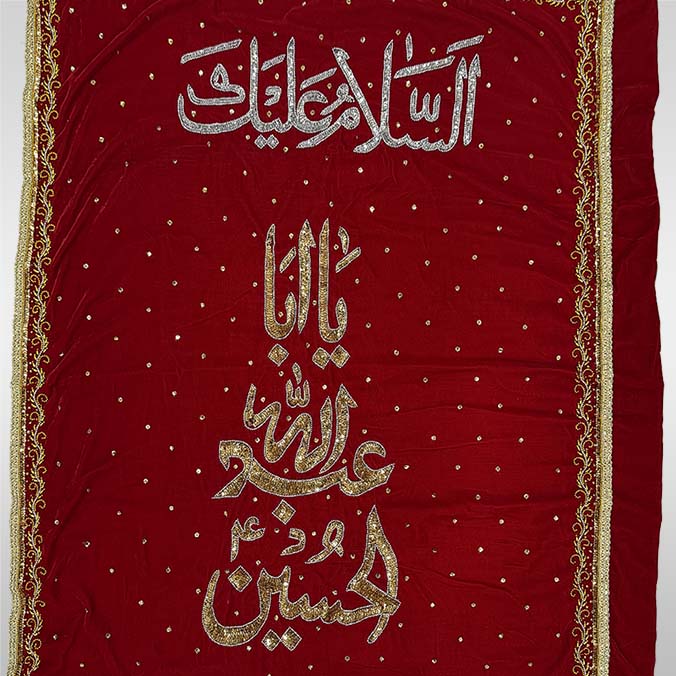 السَّلَامُ عَلَيْكَ
يَا اَبَا
عبد الله
الحُسَين ع